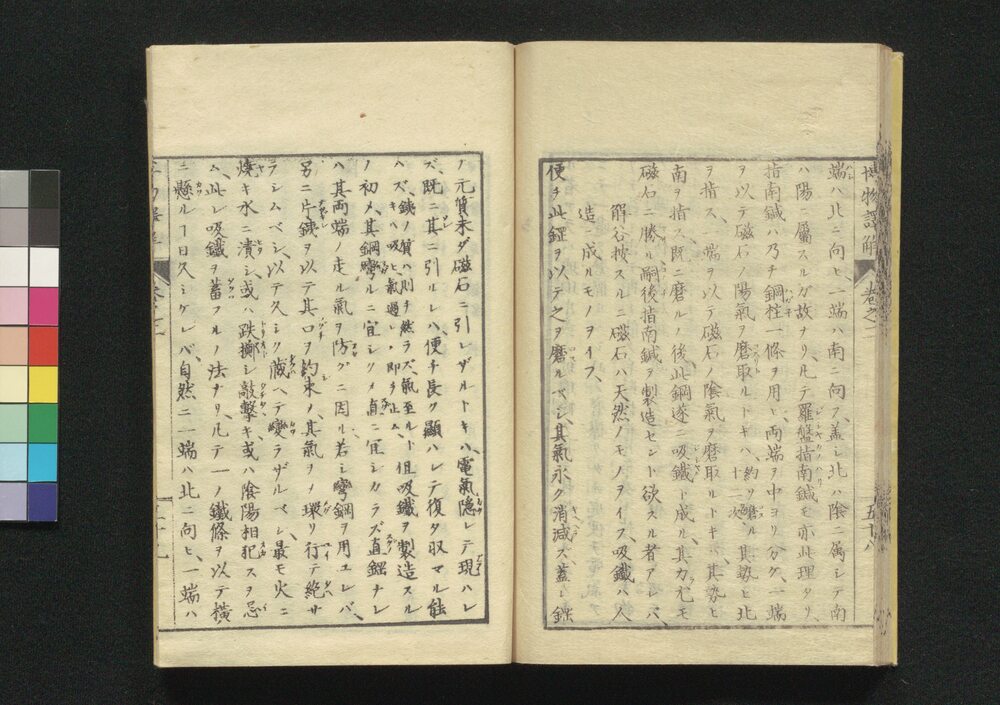 博物譯解 巻之一 五十八
端ハ北ニ向ヒ、一端ハ南ニ向フ、蓋シ北ハ陰ニ属シテ南
ハ陽ニ屬スルガ故ナリ、凡テ羅盤指南鍼モ亦此理タリ、
指南鍼ハ乃チ鋼柱一條ヲ用ヒ、両端ヲ中ヨリ分ケ、一端
ヲ以テ磁石ノ陽氣ヲ磨取ルトキハ、約リ磨ル十次其勢ヒ北
ヲ指ス、一端ヲ以テ磁石ノ陰氣ヲ磨取ルトキハ、其勢ヒ
南ヲ指ス、既ニ磨ルノ後、此鋼遂ニ吸鐵ト成ル、其力尤モ
磁石ニ勝ル、嗣後指南鍼ヲ製造セント欲スル者アレバ、
解谷按スルニ磁石ハ天然ノモノヲイヒ、吸鐵ハ人
造ニ成ルモノヲイフ、
便チ此鋼ヲ以テ之ヲ磨ルベシ、其氣永ク消減ズ、蓋シ鋼
ノ元質未ダ磁石ニ引レザルトキハ、電氣隠レテ現ハレ
ズ、既ニ其ニ引ルレバ、便チ長ク顯ハレテ復タ収マル能
ハズ、鉄ノ質ハ則チ然ラズ、氣至ルトキハ吸ヒ、氣過レバ即チ止ム、但吸鐵ヲ製造スル
ノ初メ、其鋼彎ルニ宜シクメ直ニ宜シカラズ、直鋼ナレ
ハ其両端ノ走ル氣ヲ防グニ因ル、若シ彎鋼ヲ用ユレバ、
另ニ片鉄ヲ以テ其口ヲ約束ノ、其氣ヲノ環リ行テ絶サ
ラシムベシ、以テ久シク蔵ヘテ變ラザルベシ、最モ火ニ
焼キ水ニ漬シ、或ハ跌擲シ敲撃キ、或ハ陰陽相犯スヲ忌
ム、此レ吸鐵ヲ蓄フルノ法ナリ、凡テ一ノ鐵條ヲ以テ横
ニ懸ル丁日久シケレバ、自然ニ一端ハ北ニ向ヒ、一端ハ